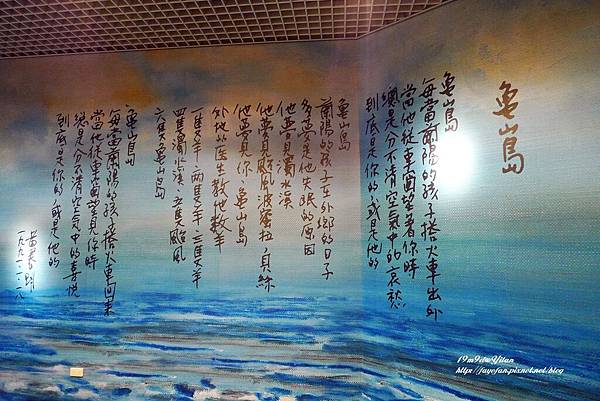 龜山島
龜山島
每當蘭陽的孩子搭火車出外
當他從車窗望著你時
總是分不清空氣中的哀愁
到底是你的或是他的
龜山島
蘭陽的孩子在外鄉的日子
多夢是他失眠的原因
他夢見濁水溪
他夢見颱風波蜜拉貝絲
他夢見你 龜山島
外地的医生教他數羊
一隻羊兩隻羊三隻羊
四隻濁水溪五隻颱風
六隻龜山島
龜山島
每當蘭陽的孩子搭火車回來
當他從車窗望見你時
總是分不清空氣中的喜悅
到底是你的或是他的
黃春明
19m9ilwYilan
http://fayefan.pixnet.net/blog